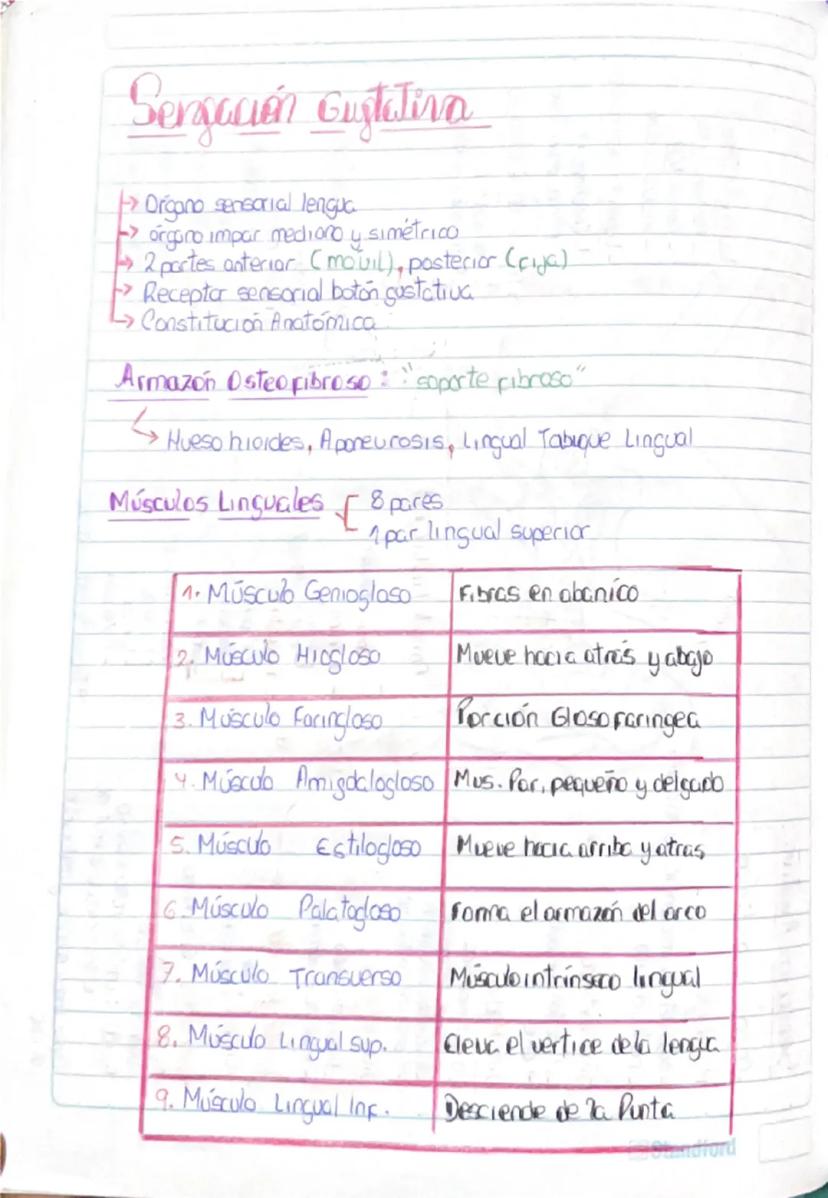 Sensación Gustativa
→ Órgano sensorial lengua
→ órgano impar mediano y simétrico
→ 2 partes anterior (móvil), posterior (fija)
→ Receptor sensorial botón gustativa
→ Constitución Anatómica
Armazón Osteofibroso: "soporte fibroso"
↳ Hueso hioides, Aponeurosis, Lingual Tabique Lingual
Músculos Linguales { 8 pares
1 par lingual superior
1. Músculo Geniogloso Fibras en abanico
2. Músculo Hiogloso Mueve hacia atrás y abajo
3. Músculo Faringloso Porción Glosofaringea
4. Músculo Amigdalogloso Mus. Par, pequeño y delgado
5. Músculo Estilogloso Mueve hacia arriba y atras
6. Músculo Palatogloso Forma el armazón del arco
7. Músculo Transverso Músculo intrínseco lingual
8. Músculo Lingual sup. Eleva el vertice de la lengua
9. Músculo Lingual Inf. Desciende de la Punta
Standford